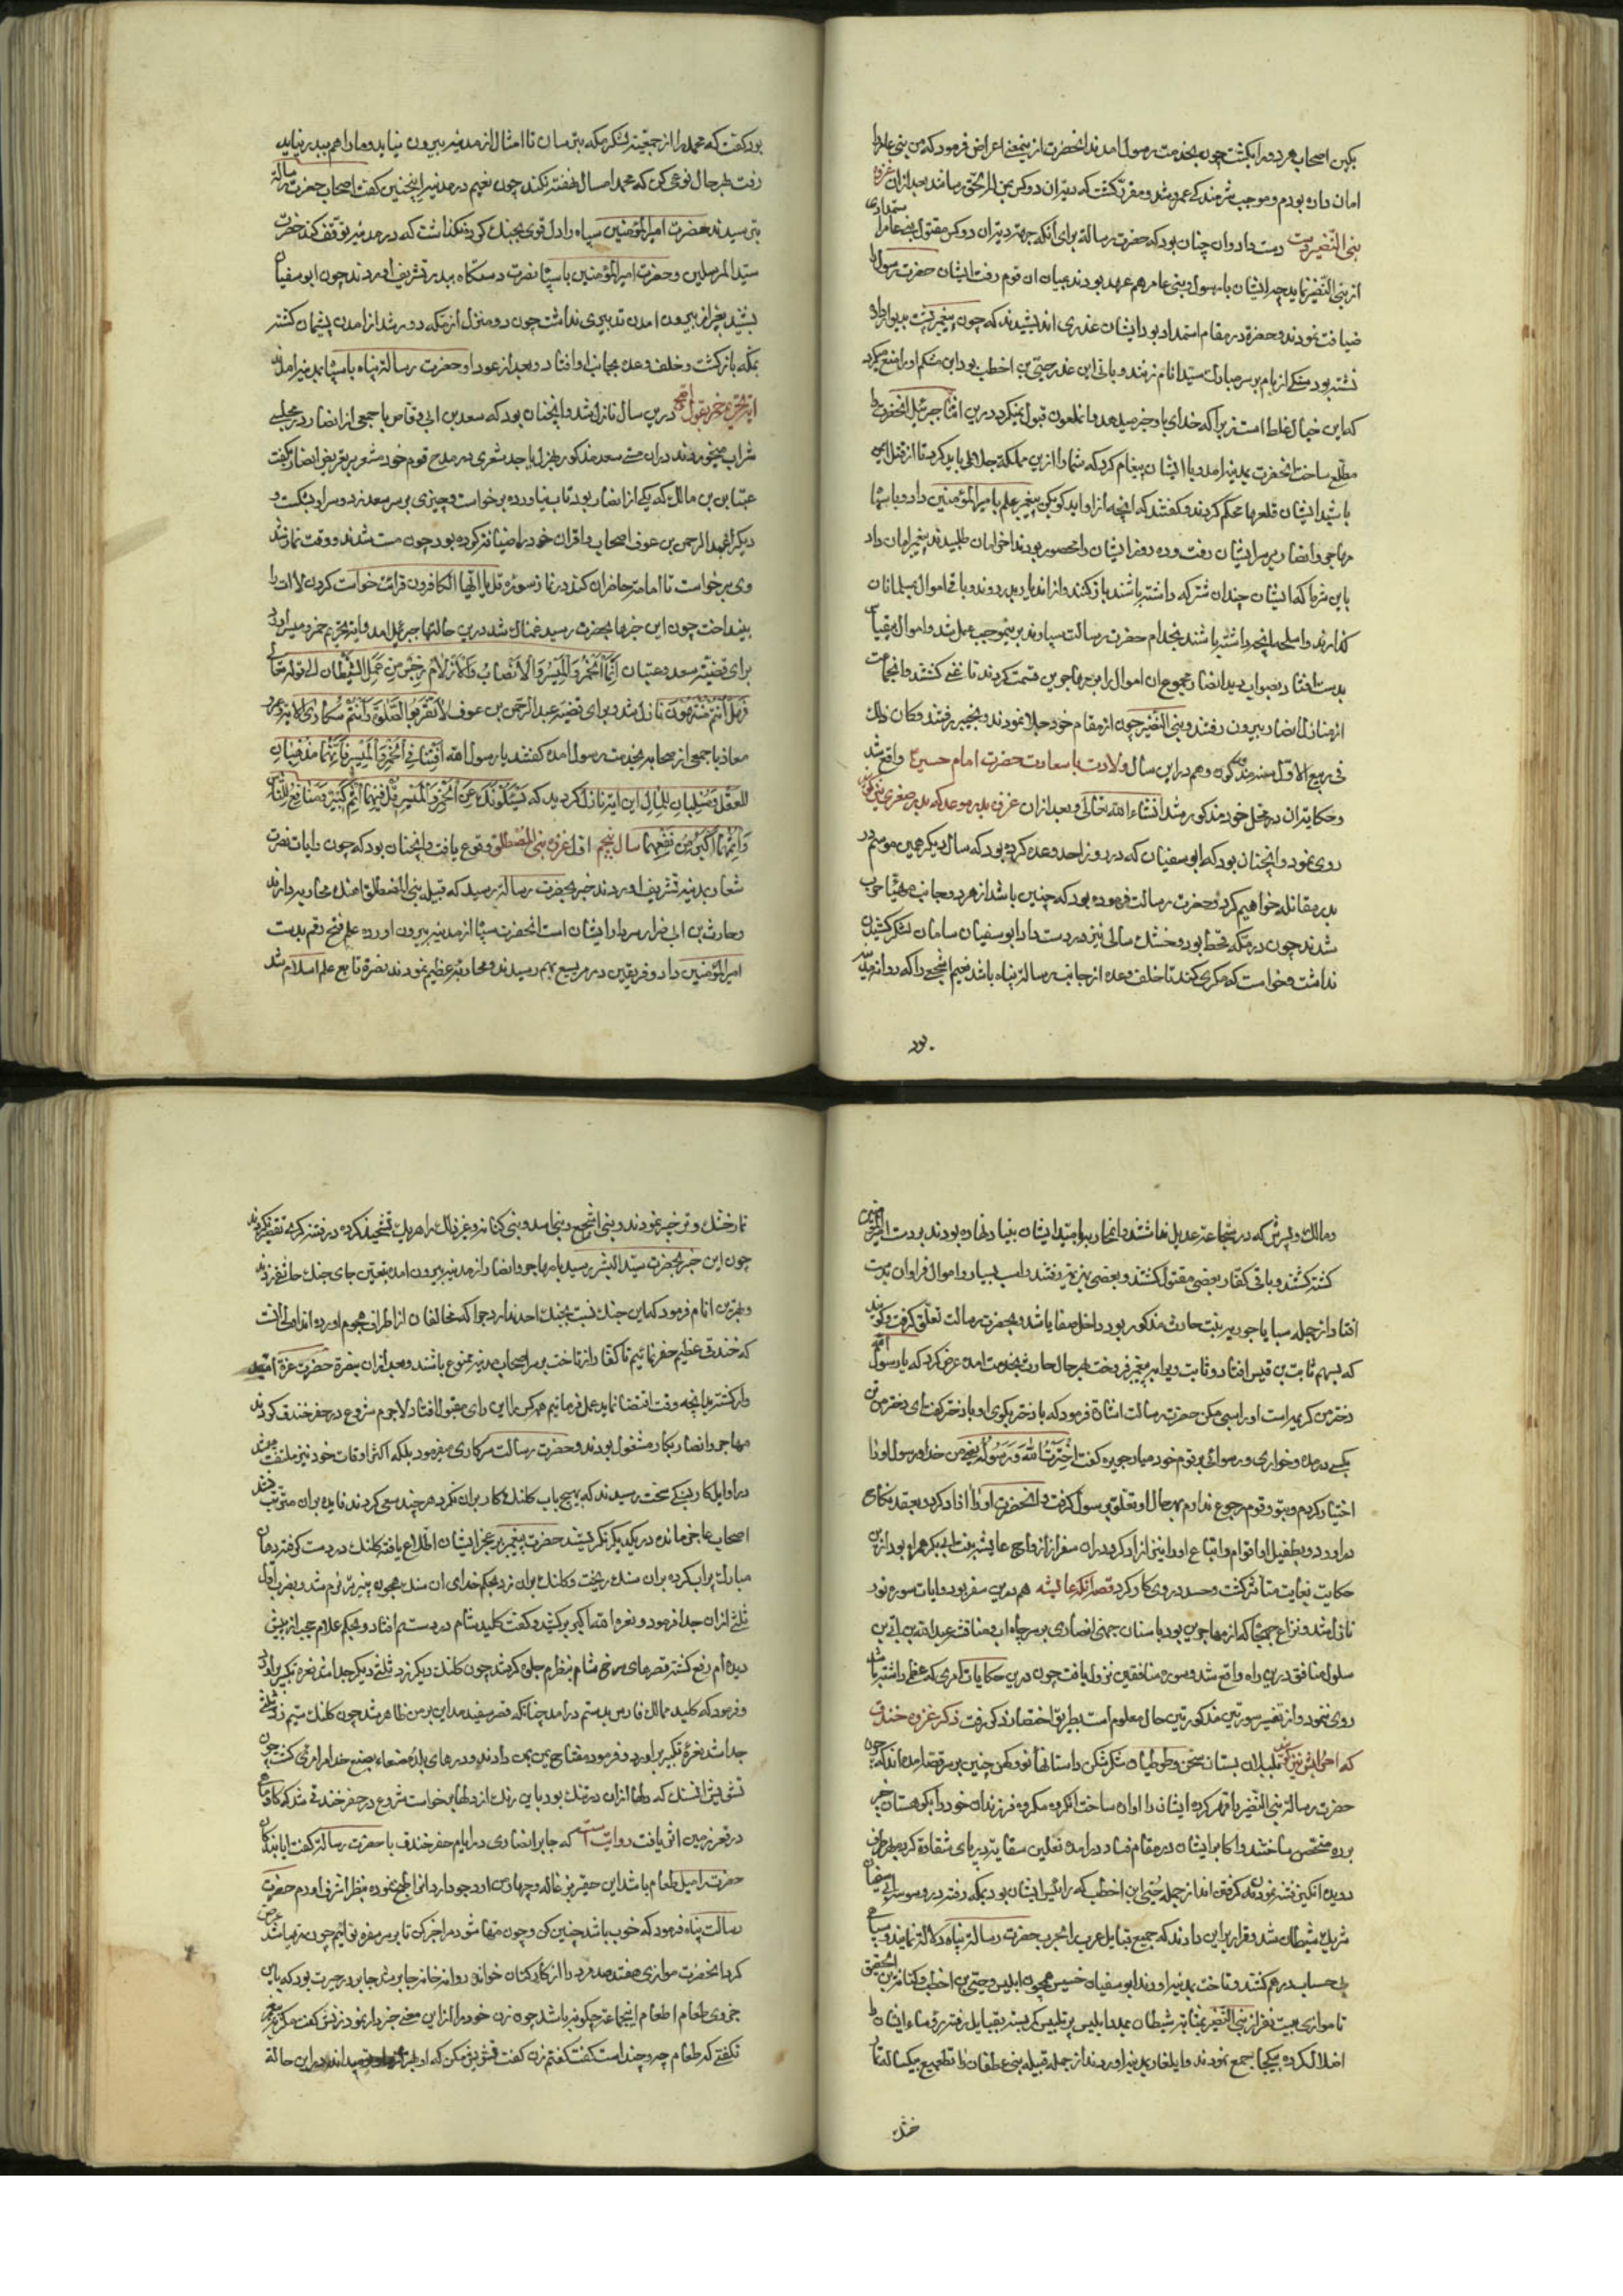 بکین اصحاب هر دو را بکشت چون بخدمت رسول امدند انحضرت ازین معنی اعراض فرمود که من بنی عامر را
امان داده بودم و موجب شرمندکی عمرو شد و مقرر کشت که دیت ان دو کس بمن المرتحق رسانند بعد ازان غزوه
بنی النضیر دست داد و ان چنان بود که حضرت رسالة برای آنکه جهة دیت ان دو کس مقتول بنی عامر استمدادی
از بنی النضیر نماید چه ایشان با رسول و بنی عامر هم عهد بودند بمیان ان قوم رفت ایشان حضرت رسول را
ضیافت نمودند و حضرة در مقام استمداد بود ایشان غدری اندیشیدند که چون پیغمبر پشت بدیوار داده
نشته بود سنکی از بام بر سر مبارک سید انام زنند و بانی این غدر حیی بن اخطب بود ابن مشکم او را منع میکرد
که این خیال غلط است زیرا که خدای او را خبر میدهد و آن ملعون قبول نمیکرد درین اثنا جبرئیل انحضرت را
مطلع ساخت انحضرت بمدینه امد و با ایشان پیغام کرد که شما را ازین مملکة جلا می باید کرد تا از قتل ایمن
باشید ایشان قلعها محکم کردند و کفتند که انچه از او اید کو بکن پیغمبر علم بامیر المؤمنین داد و با سپاه
مهاجر و انصار بر سر ایشان رفت و ده روز ایشان را محصور بودند اخر امان طلبیدند پیغمبر امان داد
باین شرط که ایشان چندان شتر که داشته باشند بار کنند و از اندیار بدر روند و باقی اموال بمسلمانان
کذارند و اسلحه انچه داشته باشند بخدام حضرت رسالت سپارند برینموجب عمل شد و اموال بیقیاس
بدست افتاد بصوابدید انصار مجموع ان اموال را بر مهاجرین قسمت کردند تا غنی کشتند و انجماعت
از منازل انصار بیرون رفتند و بنی النضیر چون از مقام خود جلا نمودند و بخیبر رفتند و کان ذلک
فی ربیع الاول سنه مذکوره و هم در این سال ولادت با سعادت حضرت امام حسین واقع شد
و حکایت ان در محل خود مذکور شد انشاء الله تعالی و بعد ازان غزوه بدر موعد که بدر صغری نیز کویند
روی نمود و انچنان بود که ابو سفیان که در روز احد وعده کرده بود که سال دیکر همین موسم در
بدر مقاتله خواهیم کرد و حضرت رسالت فرموده بود که چنین باشد از هر دو جانب مهیای حرب
شدند چون در مکه قحط بود و خشک سالی نیز دست داد ابو سفیان سامان لشکر کشیدن
نداشت و خواست که مکری کند تا خلف وعده از جانب رسالة پناه باشد نعیم اشجعی را که روانه مدینه
بود
بود کفت که محمد را از جمعیت لشکر مکه بترسان تا امثال از مدینه بیرون نیاید و ما را هم ببدر نباید
رفت بهر حال نوعی کن که محمد امسال نهضت نکند چون نعیم در مدینه اینچنین کفت اصحاب حضرت رسالة
بترسیدند حضرت امیر المؤمنین سپاه را دل قوی بجنک کرد و نکذاشت که در مدینه توقف کنند حضرت
سید المرسلین و حضرت امیر المؤمنین با سپاه نصرت دستکاه ببدر تشریف اوردند چون ابو سفیان
بشنید بغیر از بیرون امدن تدبیری نداشت چون دو منزل از مکه دور شد از امدن پشیمان کشته
بمکه بازکشت و خلف وعده بجانب او افتاد و بعد از عود او حضرت رسالة پناه با سپاه بمدینه امدند
ایة تحریم خمر بقول اصح درین سال نازل شد و انچنان بود که سعد بن ابی وقاص با جمعی از انصار در مجلسی
شراب میخوردند در ان مستی سعد مذکور بهزل یا جد شعری در مدح قوم خود مشعر بر تعریض انصار بکفت
عتبان بن مالک که یکی از انصار بود تاب نیاورده برخواست و چیزی بر سر سعد زد و سر او بشکست و
دیکر عبد الرحمن بن عوف اصحاب و اقران خود را ضیافتی کرده بود چون مست شدند و وقت نماز شد
وی برخواست تا امامت حاضران کند در نماز سوره قل یا ایها الکافرون قرائت خواست کردن لاات را
بینداخت چون این خبرها بحضرت رسید غمناک شد درین حالتها جبرئیل امد و ایت تحریم خمر و میسر اورد
برای قضیه سعد و عتبان إنما الخمر والمیسر والأنصاب والأزلام رجس من عمل الشیطان الی قوله تعالی
فهل أنتم منتهون نازل شد و برای قضیه عبد الرحمن بن عوف لا تقربوا الصلوة وأنتم سکاری الایة و عمر و
معاذ با جمعی از صحابه بخدمت رسول امده کفتند یا رسول الله أفتنا فی الخمر والمیسر فإنهما مذهبان
للعقل ومسلبان للمال این ایة نازل کردید که یسئلونک عن الخمر والمیسر قل فیهما إثم کبیر ومنافع للناس
وإثمهما أکبر من نفعهما سال پنجم اول غزوه بنی المصطلق وقوع یافت و انچنان بود که چون رایات نصرت
شعار بمدینه تشریف اوردند خبر بحضرت رسالة رسید که قبیله بنی المصطلق اهنک محاربه دارند
و حارث بن ابی ضرار سردار ایشان است انحضرت سپاه از مدینه بیرون اورده علم فتح رقم بدست
امیر المؤمنین داد و فریقین در مریسیع بهم رسیدند و محاربه عظیم نمودند نصرة تابع علم اسلام شد
و مالک و پسرش که در شجاعت عدیل نداشتند و انمحاربه بامید ایشان بنیاد نهاده بودند بر دست امیر المؤمنین
کشته کشتند و باقی کفار بعضی مقتول کشتند و بعضی بهزیمت رفتند و اسب بسیار و اموال فراوان بدست
افتاد از جمله سبایا جویریه بنت حارث مذکور بود داخل صفایا شد و بحضرت رسالت تعلق کرفت و کویند
که بسهم ثابت بن قیس افتاد و ثابت ویرا بپیغمبر فروخت بهر حال حارث بخدمت امده عرض کرد که یا رسول الله
دختر من کریمه است او را سبی مکن حضرت رسالت اشارة فرمود که با دختر بکوی او با دختر کفت ای دختر من
یکسی در مده و خواری و رسوائی بر قوم خود میار جویریه کفت إخترت الله ورسوله یعنی من خدا و رسول او را
اختیار کردم و بتو و قوم رجوع ندارم بهر حال او تعلق برسول کرفت و انحضرت او را آزاد کرد و بعقد نکاح
در اورد و بطفیل او اقوام و اتباع او را نیز ازاد کرد در ان سفر از ازواج عایشه بنت ابی بکر همراه بود ازین
حکایت بغایت متاثر کشت و حسد در وی کار کرد قصه افک عائشه هم درین سفر بود و ایات سوره نور
نازل شد و نزاع جهجاه که از مهاجرین بود با سنان جهنی انصاری بر سر چاه اب و منافقت عبد الله بن ابی بن
سلول منافق درین راه واقع شد و سوره منافقین نزول یافت چون درین حکایات امری که عظم داشته باشد
روی ننمود و از تفسیر سورتین مذکورتین حال معلوم است بطریق اختصار ذکر رفت ذکر غزوه خندق
که احزابش نیز کویند بلبلان بستان سخن و طوطیان شکرشکن داستانها نو و کهن چنین بر سر قصه امده اند که چون
حضرت رسالة بنی النضیر را قهر کرده ایشان را اواره ساخت انکروه مکروه فرزندان خود را بکوهستان خیبر
برده متحصن ساختند و اکابر ایشان در مقام فساد در امده نعلین سقایت در پای شقاوة کرده بهر طرف
دویده انکیز فتنه نمودن کرفتن اند از جمله حیی ابن اخطب که رائیس ایشان بود بمکه رفته در وسوسه ابی سفیان
شریک شیطان شد و قرار بر این دادند که جمیع قبایل عرب را بحرب حضرت رسالة پناه دلالة نمایند و سپاه
بی حساب در هم کنند و تاخت بمدینه اورند ابو سفیان خسیس همچون ابلیس و حیی بن اخطب و کنانة بن ابی الحقیق
تا موازی بیست نفر از بنی النضیر بمثابه شیطان بمدد ابلیس پر تلبیس کربسته بقبایل رفته رؤساء ایشان را
اضلال کرده یکجا جمع نمودند و ایلغار بمدینه اوردند از جمله قبیله بنی غطفان را تطمیع یکساله
خشک
تمار خشک و تر خیبر نمودند و بنی اشجع و بنی اسد و بنی کنانه و غیر ذلک را هر یک تشحیذ کرده در فتنه کری تقصیر نکردند
چون این خبر بحضرت سید البشر رسید با مهاجر و انصار از مدینه بیرون امد بتعیین جای جنک حاضر شدند
و بهترین انام فرمود که این جنک نسبت بجنک احد ندارد چرا که مخالفان از اطراف هجوم اورده اند اولی انست
که خندقی عظیم حفر نمائیم تا کفار از تاخت بر سر اصحاب مدینه ممنوع باشند و بعد ازان بنصرة حضرت عزة امیدوار
وار کشته بدانچه وقت اقتضا نماید عمل فرمائیم همه کس را این رای مقبول افتاد لاجرم شروع در حفر خندق کردند
مهاجر و انصار بکار مشغول بودند و حضرت رسالت سرکاری میفرمود بلکه اکثر اوقات خود نیز ملتفت میشد
در اوایل کار بسنکی سخت رسیدند که بهیچ باب کلنک کار بر ان نکرد هر چند سعی کردند فایده بران مترتب نشد
اصحاب عاجز مانده در یکدیکر نکریستند حضرت پیغمبر بر عجز ایشان اطلاع یافته کلنک در دست کرفته دهان
مبارک پر اب کرده بر ان سنک ریخت و کلنک بران زد بحکم خدای ان سنک همچون پنیر تر نرم شد و بضرب اول
ثلثی از ان جدا فرمود و نعره الله اکبر برکشید و کفت کلید شام در دستم افتاد و بحکم علام حجب از پیش
دیده ام رفع کشته قصرهای سرخ شام بنظرم جلوه کر شد چون کلنک دیکر زد ثلثی دیکر جدا شد نعره تکبیر براورد
و فرمود که کلید ممالک فارس بدستم درامد چنانکه قصر سفید مداین بر من ظاهر شد چون کلنک سیم زد ثلثی
جدا شد نعره تکبیر براورد و فرمود مفتاح یمن بمن دادند و درهای بلده صنعاء بصنع خدا مرا مرئی کشت چون
تشویش انسنک که دلها ازان در تنک بود باین رنک از دلها برخواست شروع در حفر خندق شد که کاو ماهی
در قعر زمین اثر یافت روایت است که جابر انصاری در ایام حفر خندق با حضرت رسالة کفت ایا بندکان
حضرت را میل طعام باشد این حقیر بزغاله و چهار من ارد جو دارد انرا طبخ نموده بنظر اشرف اورم حضرت
رسالت پناه فرمود که خوب باشد چنین کن و چون مهیا شود مرا خبر کن تا بر سر سفره تو ائیم چون مهیا شد عرض
کرد انحضرت موازی هفتصد مرد را از کارکنان خوانده روانه خانه جابر شد جابر در حیرت بود که باین
جزوی طعام اطعام اینجماعت چکونه باشد چون زن خود را از این معنی خبردار نمود زنش کفت مکر به پیغمبر
نکفتی که طعام چه و چند است کفت کفتم زن کفت تشویش مکن که او بهتر میداند در این حالة